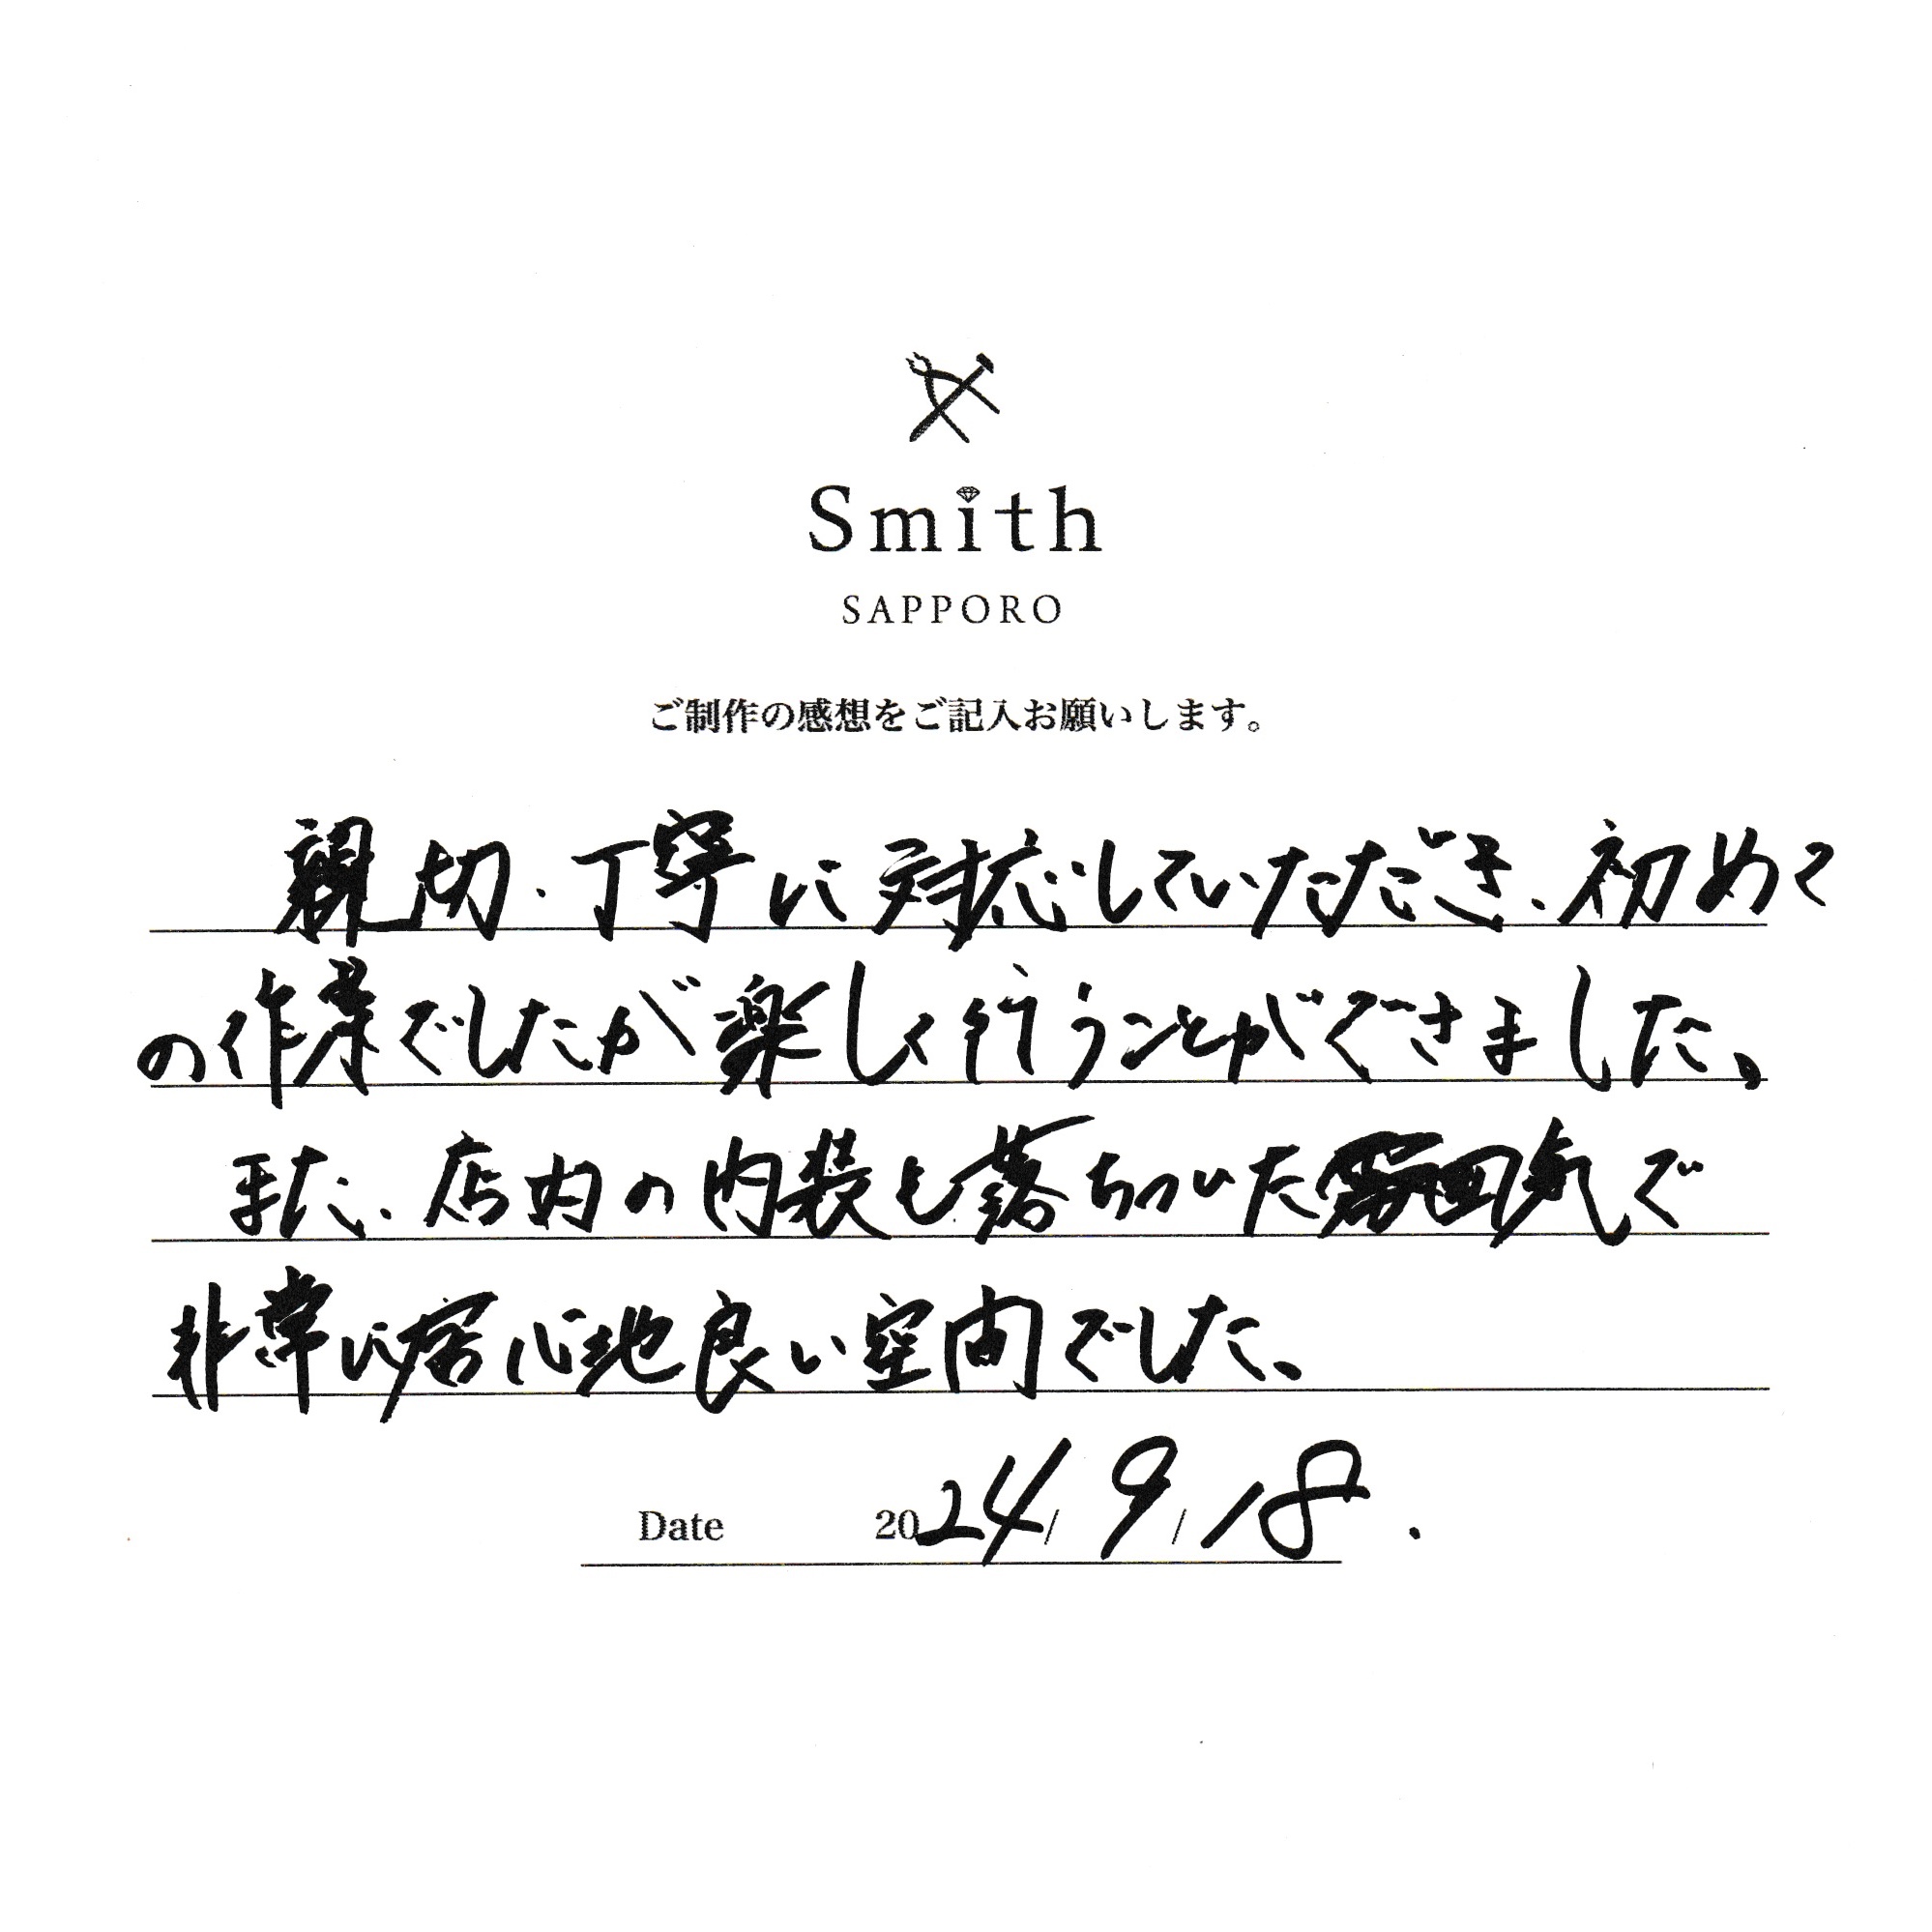 Smith
SAPPORO
ご制作の感想をご記入お願いします。
親切・丁寧に対応していただき、初めて
の作業でしたが楽しく行うことができました。
また、店内の内装も落ちついた雰囲気で
非常に居心地良い空間でした。
Date 2024/9/18.